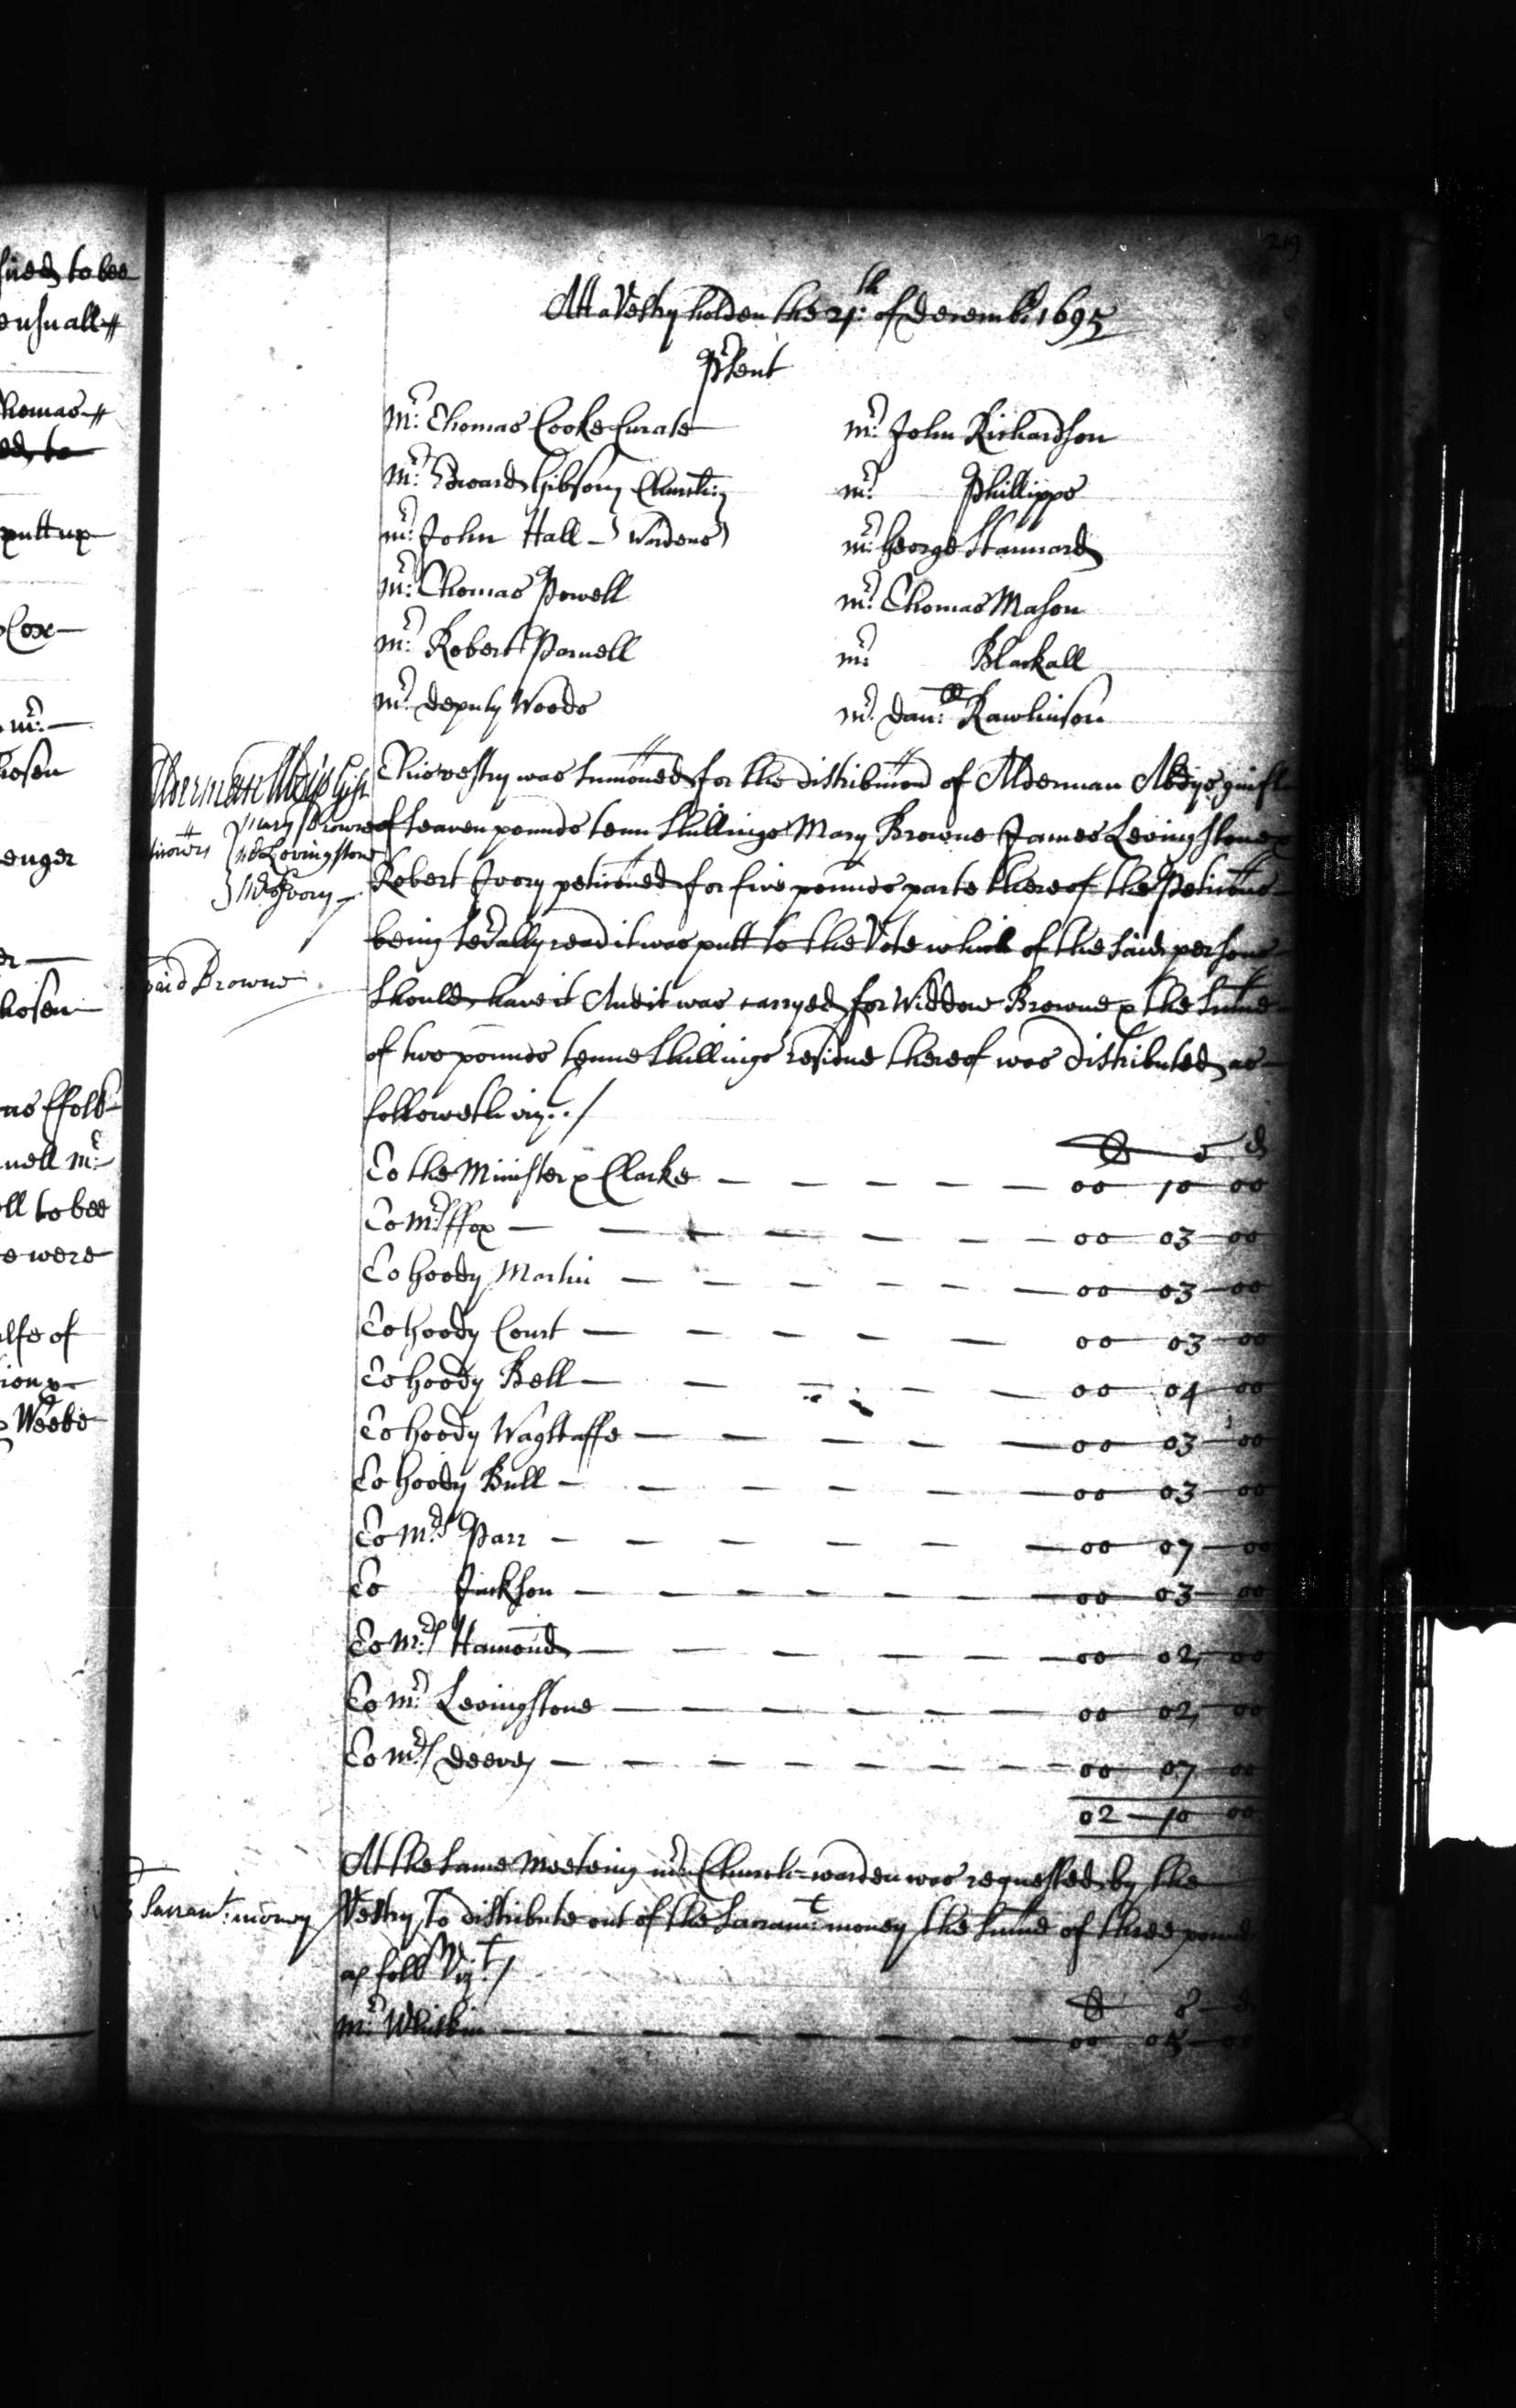 219
sued to bee
ensuall
Thomas
ed to
putt up
Cox
mr:
hosen
enger
er
hosen
as ffoll
nell mr:
ll to bee
e were
alfe of
ion
Weebe
Att a Vestry holden the 21th: of decemb: 1695
Prsent
Mr: Thomas Cooke Curate
mr: John Richardson
Mr: Edward Gibson Church
mr: Phillipps
mr: John Hall - } Wardens
mr: George Stannard
mr: Thomas Powell
mr: Thomas Mason
mr: Robert Parnell
mr: Blackall
mr: deputy Woods
mr: Dan:ll Rawlinson
Alderman Abdys Gift
This vestry was sumoned for the distribution of Alderman Abdys guift
Mary Browne
of seaven pounds tenn shillings Mary Browne James Levingstone &
Levingstone
Ivory
Robert Ivory petitioned for five pounds parte thereof the Petitions
being sevrally read it was putt to the Vote which of the said persons
paid Browne
should have it And it was carryed for Widdow Browne & the sume
of two pounds tenne shillings residue thereof was distributed as
followeth viz: /
£ s d
To the Minister & Clarke 00 10 00
To Mrs ffox 00 03 00
To Goody Martin 00 03 00
To Goody Court 00 03 00
To Goody Bell 00 04 00
To Goody Wagstaffe 00 03 00
To Goody Bull 00 03 00
To Mrs Parr 00 07 00
To Jackson 00 03 00
To Mrs Hamond 00 02 00
To Mr Levingstone 00 02 00
To Mrs Deere 00 07 00
02 10 00
At the same Meeteing mr: Church-warden was requested by the
Sacramt: money
Vestry To distribute out of the Sacramt: money the sume of three pounds
as foll Vizt /
£ s d
Mr: Whiskin 00 05 00